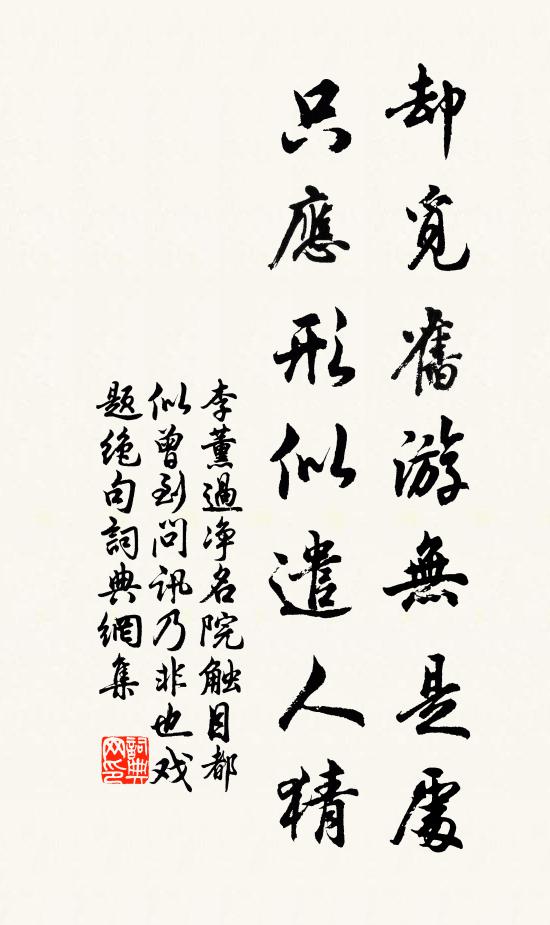 却覓舊游無是處
只應形似遣人猜
李薰過净名院触目都
似曾到问讯乃非也戏
题绝句詞典網集
詞典
网印